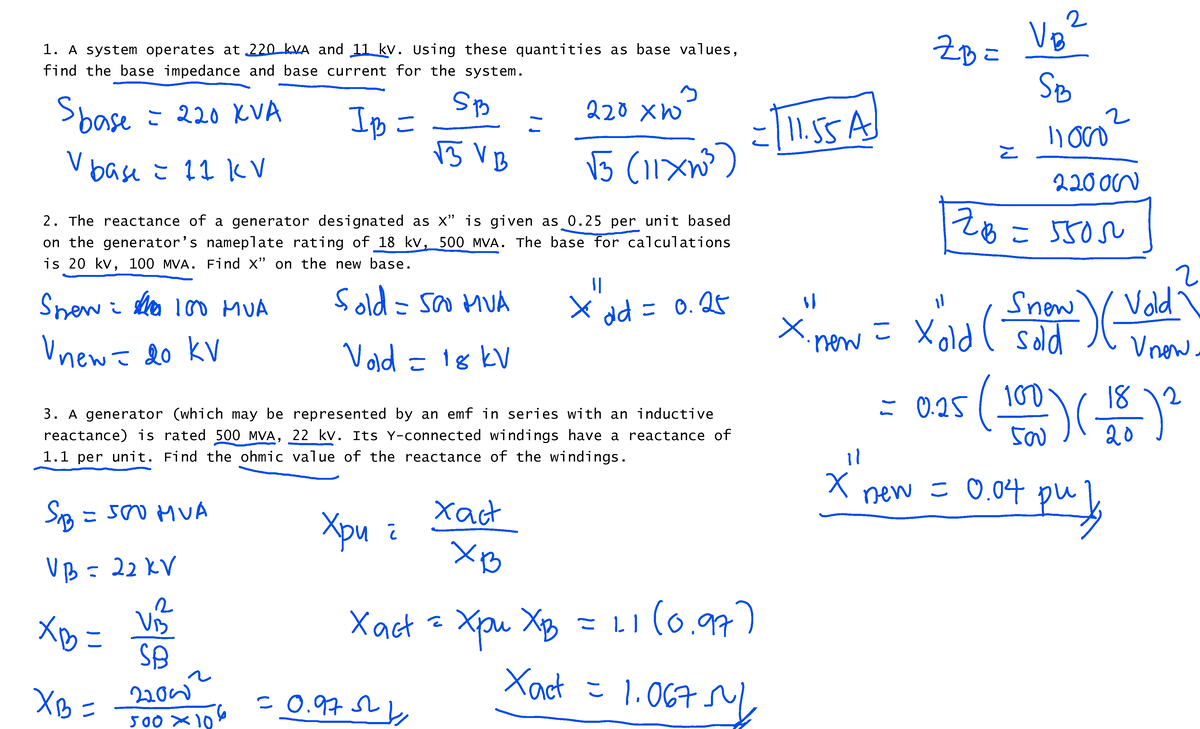 1. A system operates at 220 kVA and 11 kV. Using these quantities as base values,
find the base impedance and base current for the system.
Sbase = 220 KVA
Vbase = 11 kV
IB = SB / √3 VB = 220 x10³ / √3 (11x10³) = 11.55 A
ZB = VB² / SB
= 11000² / 220000
ZB = 550Ω
2. The reactance of a generator designated as X” is given as 0.25 per unit based
on the generator’s nameplate rating of 18 kV, 500 MVA. The base for calculations
is 20 kV, 100 MVA. Find X” on the new base.
Snew = 100 MVA
Vnew = 20 kV
Sold = 500 MVA
Vold = 18 kV
X"old = 0.25
X"new = X"old (Snew / Sold)(Vold / Vnew)²
= 0.25 (100 / 500)(18 / 20)²
X"new = 0.04 pu
3. A generator (which may be represented by an emf in series with an inductive
reactance) is rated 500 MVA, 22 kV. Its Y-connected windings have a reactance of
1.1 per unit. Find the ohmic value of the reactance of the windings.
SB = 500 MVA
VB = 22 kV
XB = VB² / SB
XB = 22000² / 500 x 10⁶ = 0.97 Ω
Xpu = Xact / XB
Xact = Xpu XB = 1.1 (0.97)
Xact = 1.067 Ω